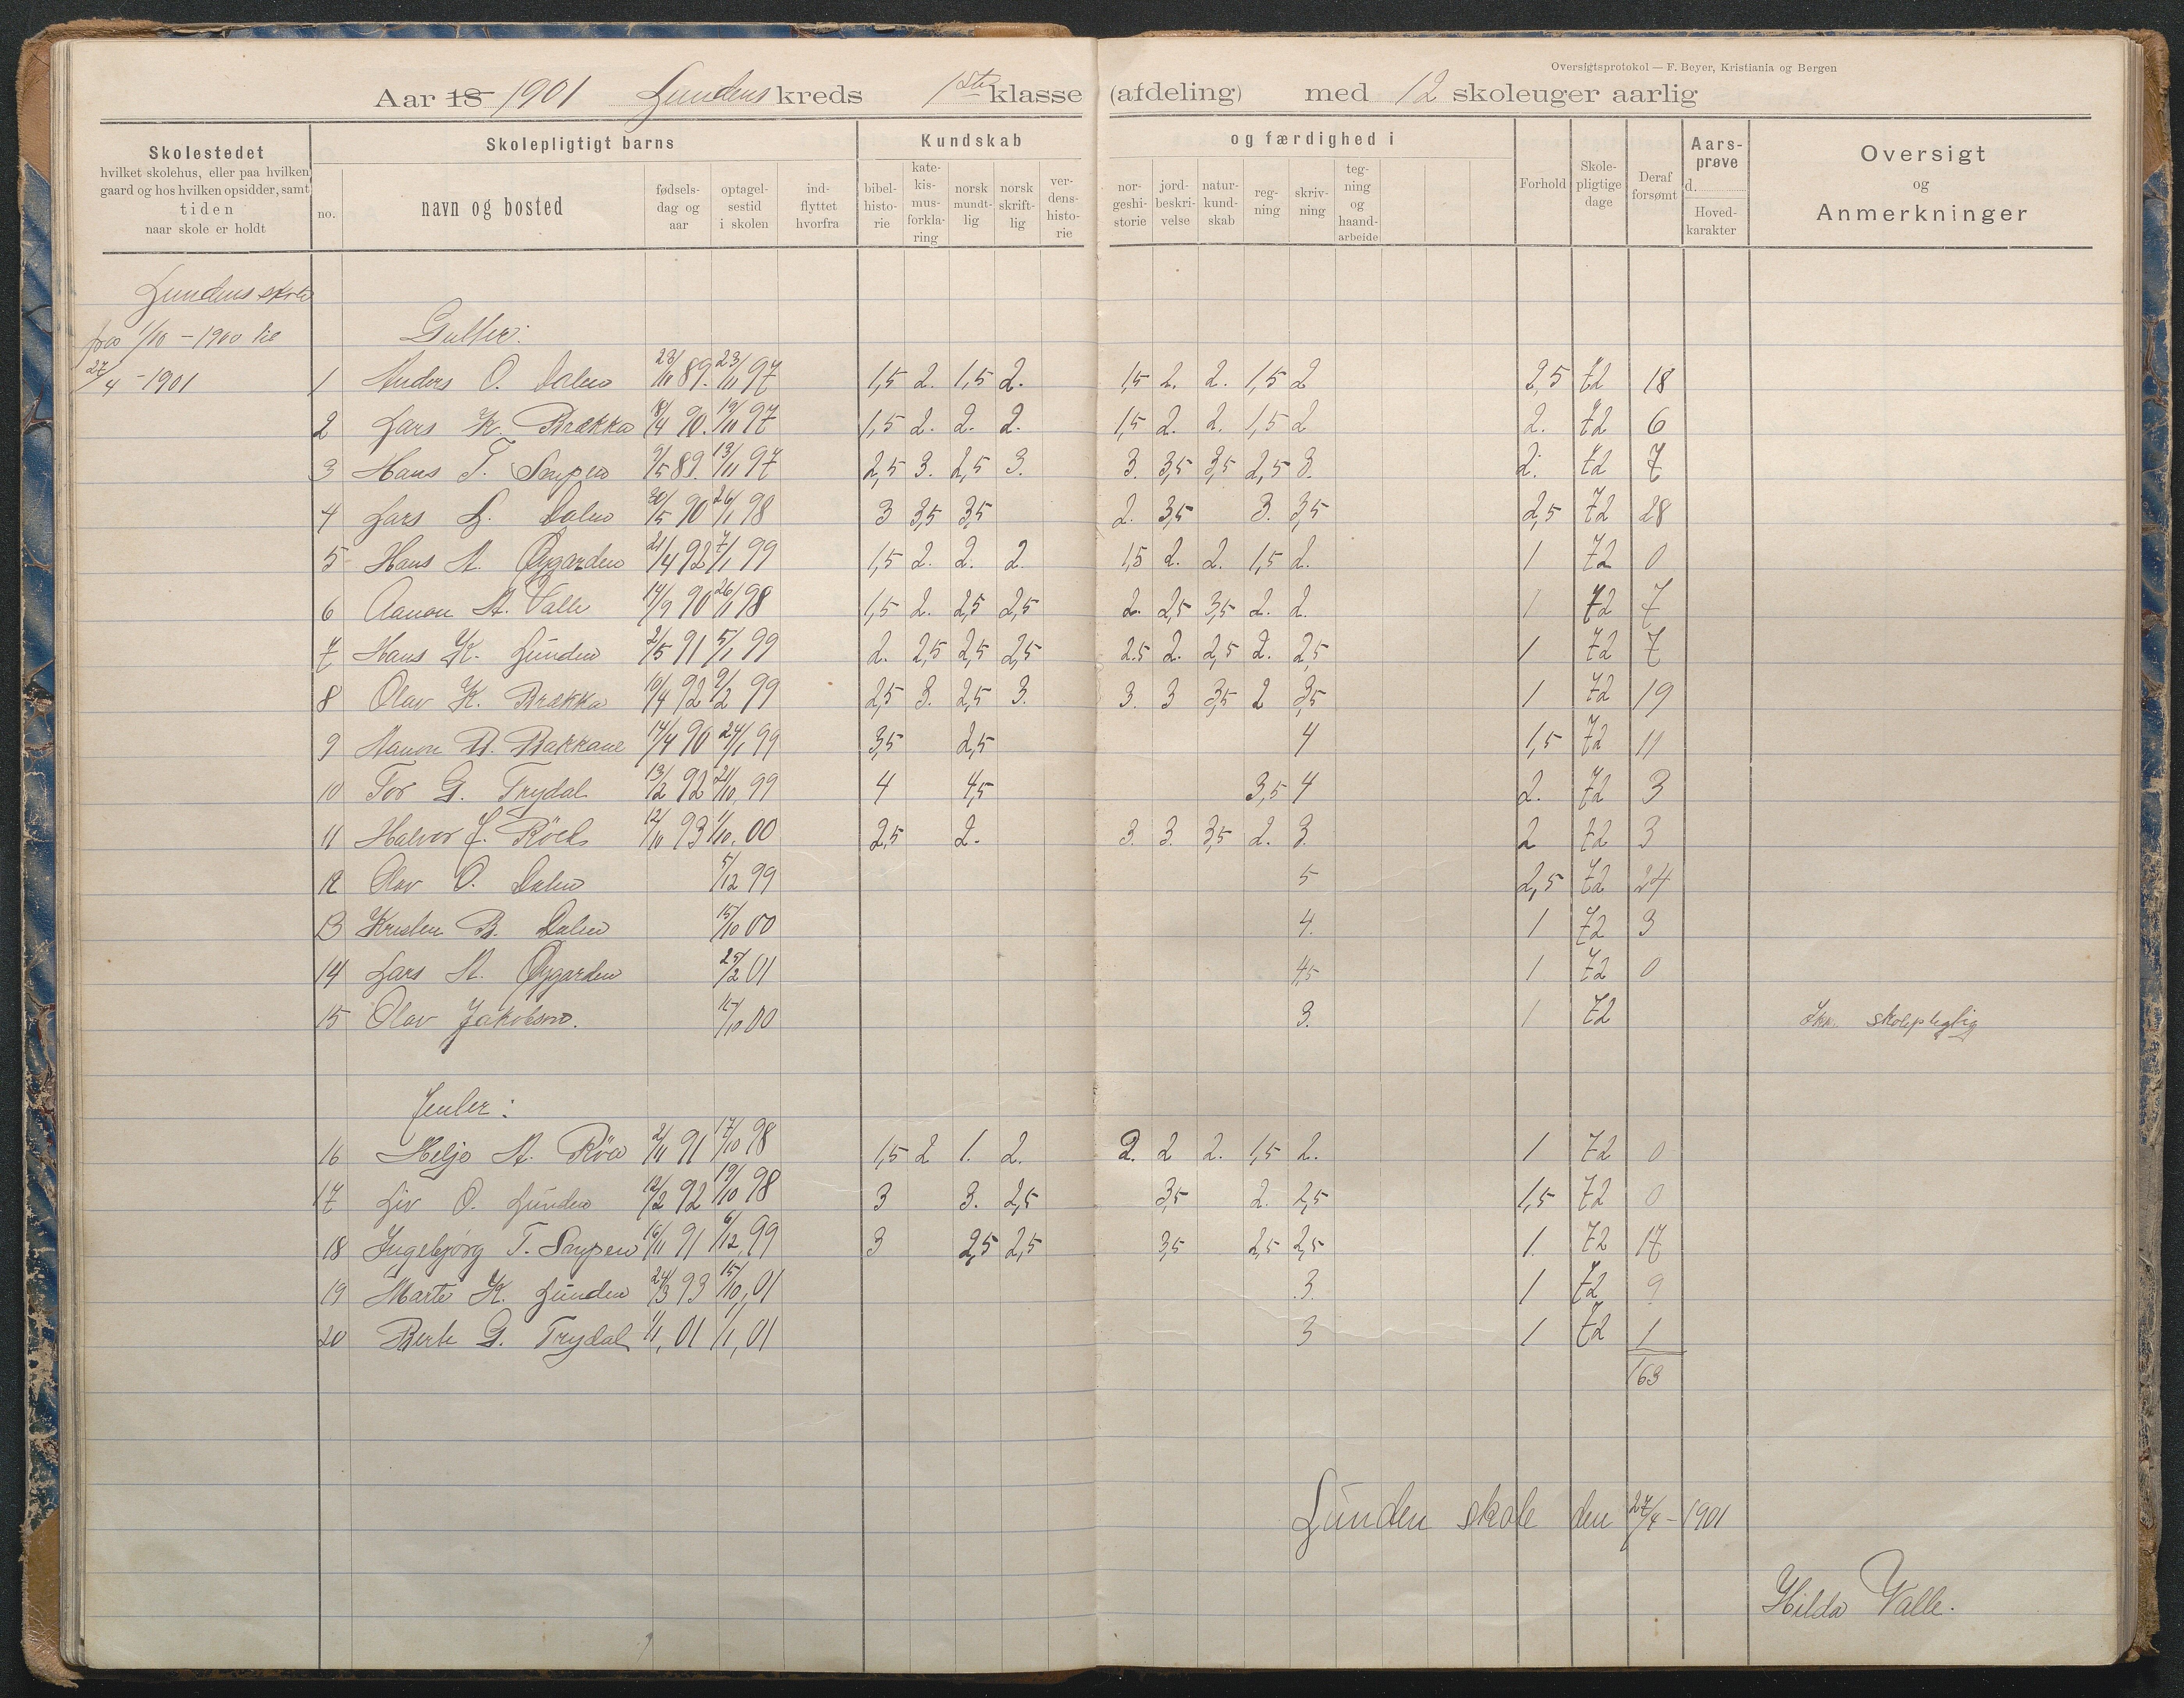 Oversigtsprotokol — F. Beyer, Kristiania og Bergen
Aar 18 1901 Lundens kreds 1ste klasse (afdeling) med 12 skoleuger aarlig
Skolestedet
hvilket skolehus, eller paa hvilken
gaard og hos hvilken opsidder, samt
tiden
naar skole er holdt
Skolepligtigt barns
no.
navn og bosted
fødsels-
dag og
aar
optagel-
sestid
i skolen
ind-
flyttet
hvorfra
Kundskab
bibel-
histo-
rie
kate-
kis-
mus-
forkla-
ring
norsk
mundt-
lig
norsk
skrift-
lig
ver-
dens-
histo-
rie
og færdighed i
nor-
geshi-
storie
jord-
beskri-
velse
natur-
kund-
skab
reg-
ning
skriv-
ning
teg-
ning
og
haand-
arbeide
Forhold
Skole-
pligtige
dage
Deraf
forsømt
Aars-
prøve
d.
Hoved-
karakter
Oversigt
og
Anmerkninger
Lundens skole
fra 1/10 - 1900 til
27/4 - 1901
Gutter:
1 Anders O. Dalen 23/11 89. 23/11 97 1,5 2. 1,5 2. 1,5 2. 2. 1,5 2 2,5 72 18
2 Lars K. Brækka 18/4 90. 19/11 97 1,5 2. 2. 2. 1,5 2. 2. 1,5 2 2. 72 6
3 Hans T. Snypen 9/5 89. 13/11 97 2,5 3. 2,5 3. 3. 3,5 3,5 2,5 3. 2. 72 7
4 Lars L. Dalen 30/5 90 26/1 98 3 3,5 3,5 2. 3,5 3. 3,5 2,5 72 28
5 Hans A. Øygarden 21/4 92 7/1 99 1,5 2. 2. 2. 1,5 2. 2. 1,5 2. 1 72 0
6 Aanon A. Valle 14/9 90 26/1 98 1,5 2. 2,5 2,5 2. 2,5 3,5 2. 2. 1 72 7
7 Hans K. Lunden 2/5 91 5/1 99 2. 2,5 2,5 2,5 2.5 2. 2,5 2. 2,5 1 72 7
8 Olav K. Brækka 10/4 92 9/2 99 2,5 3. 2,5 3. 3. 3 3,5 2 3,5 1 72 19
9 Aanon B. Bakkane 14/4 90 24/1 99 3,5 2,5 4 1,5 72 11
10 Tor G. Trydal 13/2 92 21/10, 99 4 4,5 3,5 4 2. 72 3
11 Halvor J. 12/11 93 1/10. 00 2,5 2. 3. 3. 3,5 2. 3. 2 72 3
12 Olav O. Dalen 5/12 99 5 2,5 72 24
13 Kristen B. Dalen 15/10 00 4. 1 72 3
14 Lars A. Øygarden 25/2 01 4,5 1 72 0
15 Olav Jakobsen. 15/10 00 3. 1 72 Ikke skolepligtig
Jenter:
16 Heljo A. 2/11 91 17/10 98 1,5 2 1. 2. 2. 2 2. 1,5 2. 1 72 0
17 Liv O. Lunden 12/2 92 19/10 98 3 3. 2,5 3,5 2. 2,5 1,5 72 0
18 Ingebjørg T. Snypen 16/11 91 6/12, 99 3 2,5 2,5 3,5 2,5 2,5 1. 72 17
19 Marte K. Lunden 24/3 93 15/10, 01 3. 1 72 9
20 Berte G. Trydal 1/1, 01 1/1, 01 3 1 72 1
163
Lunden skole den 27/4 - 1901
Hilda Valle.